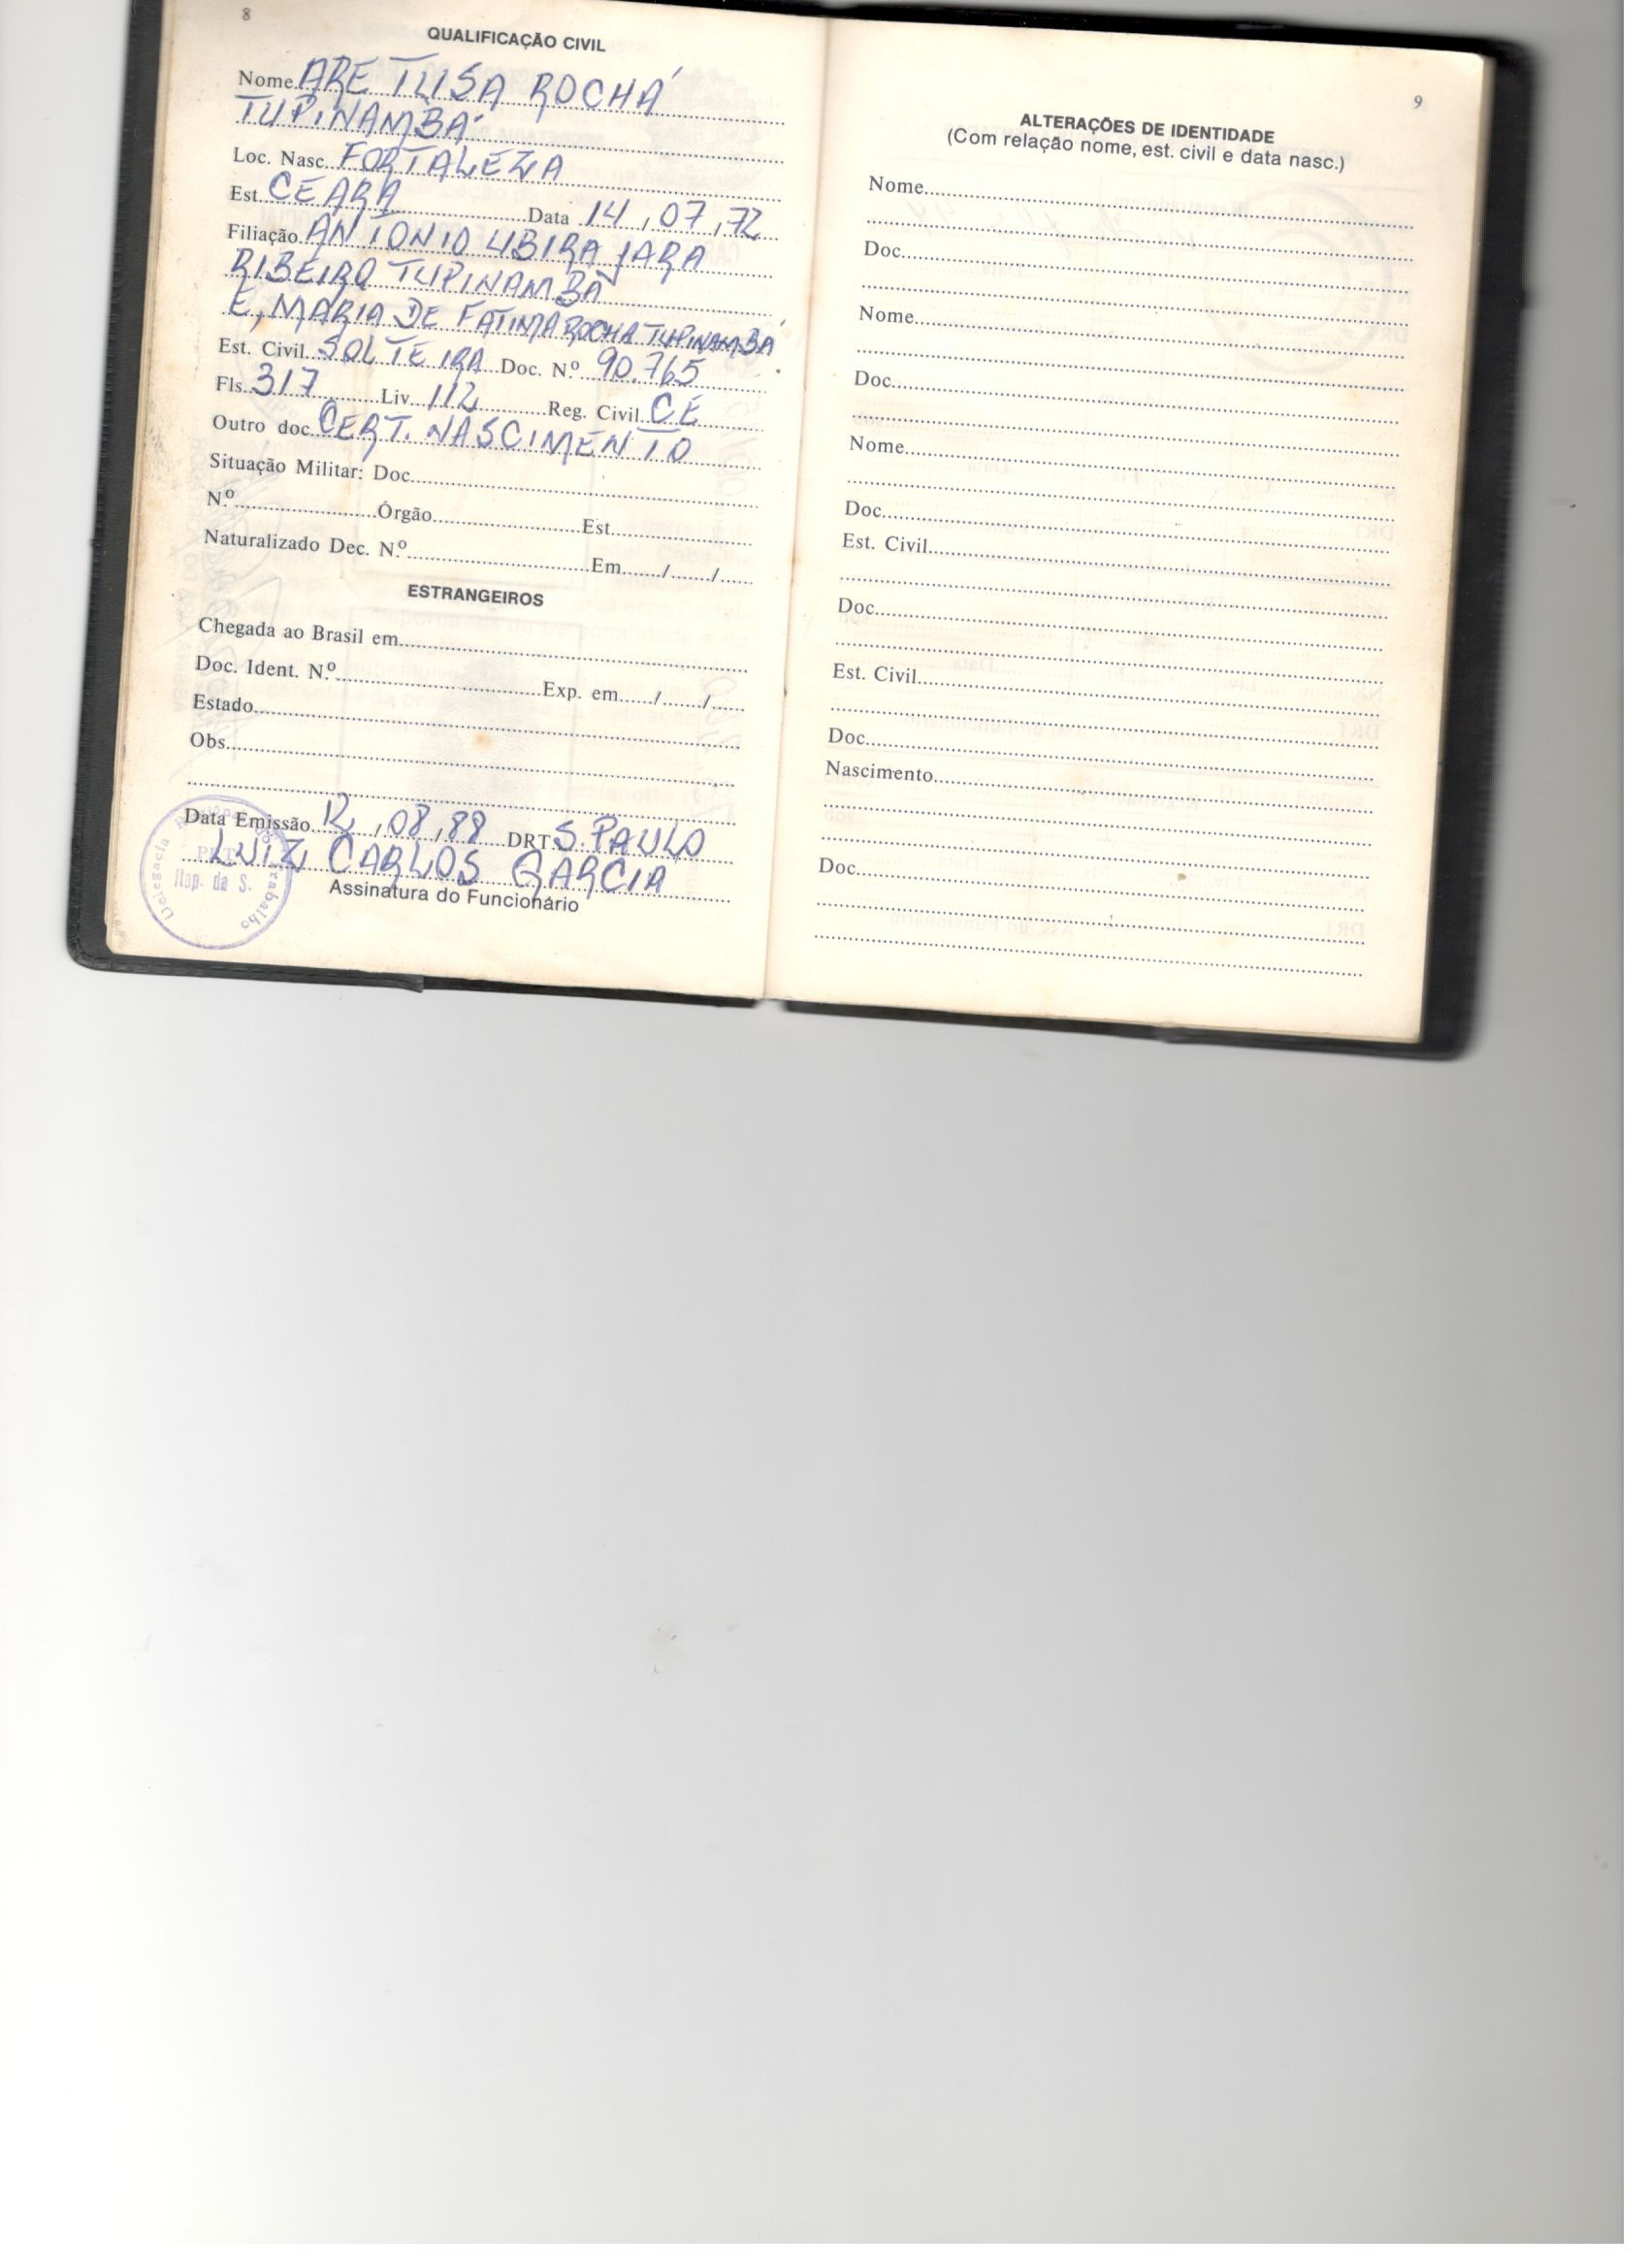 8
QUALIFICAÇÃO CIVIL
Nome ARETUSA ROCHA
TUPINAMBÁ
Loc. Nasc. FORTALEZA
Est. CEARA Data 14,07,72
Filiação ANTONIO UBIRAJARA
RIBEIRO TUPINAMBÁ
E, MARIA DE FATIMA ROCHA TUPINAMBÁ
Est. Civil SOLTEIRA Doc. N.º 90.765
Fls. 317 Liv. 112 Reg. Civil CE
Outro doc. CERT. NASCIMENTO
Situação Militar: Doc.
N.º Órgão Est.
Naturalizado Dec. N.º Em / /
ESTRANGEIROS
Chegada ao Brasil em
Doc. Ident. N.º Exp. em / /
Estado
Obs.
Data Emissão 12,08,88 DRT S. PAULO
LUIZ CARLOS GARCIA
Assinatura do Funcionário
Delegacia Regional do Trabalho
Itap. da S.
9
ALTERAÇÕES DE IDENTIDADE
(Com relação nome, est. civil e data nasc.)
Nome
Doc.
Nome
Doc.
Nome
Doc.
Est. Civil
Doc.
Est. Civil
Doc.
Nascimento
Doc.